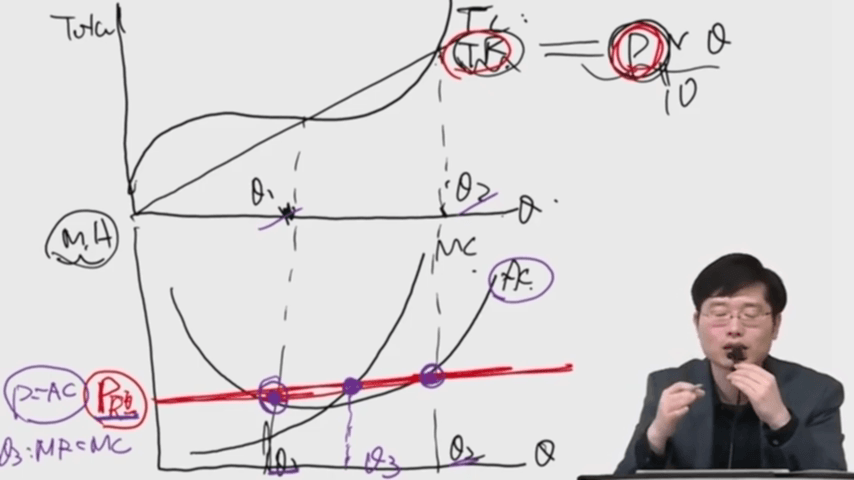 Total
TC
TR = P × Q
10
Q1
Q2
Q
MC
AC
P=AC
Q3 : MR=MC
Q3
Q2
Q